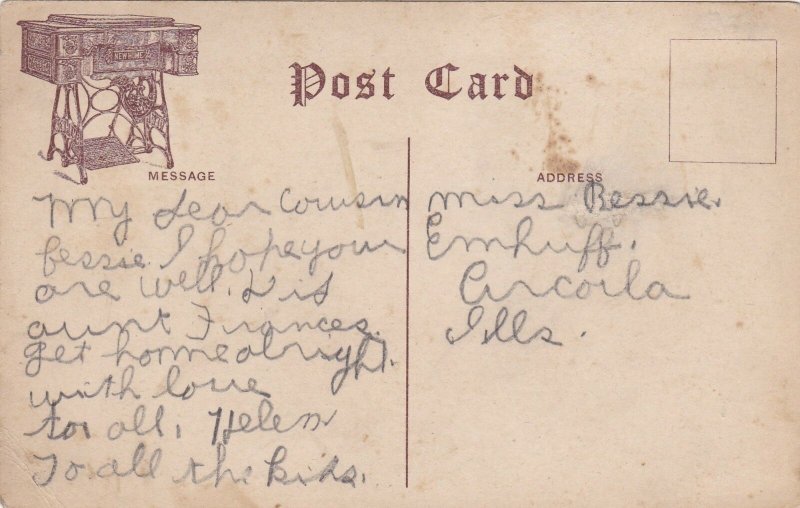 NEW HOME
Post Card
MESSAGE
My dear Cousin
bessie I hope your
are well. Did
aunt Frances.
get home alright.
with love
to all, Helen
To all the Kids.
ADDRESS
Miss Bessie.
Emhuff.
Arcoila
Ills.